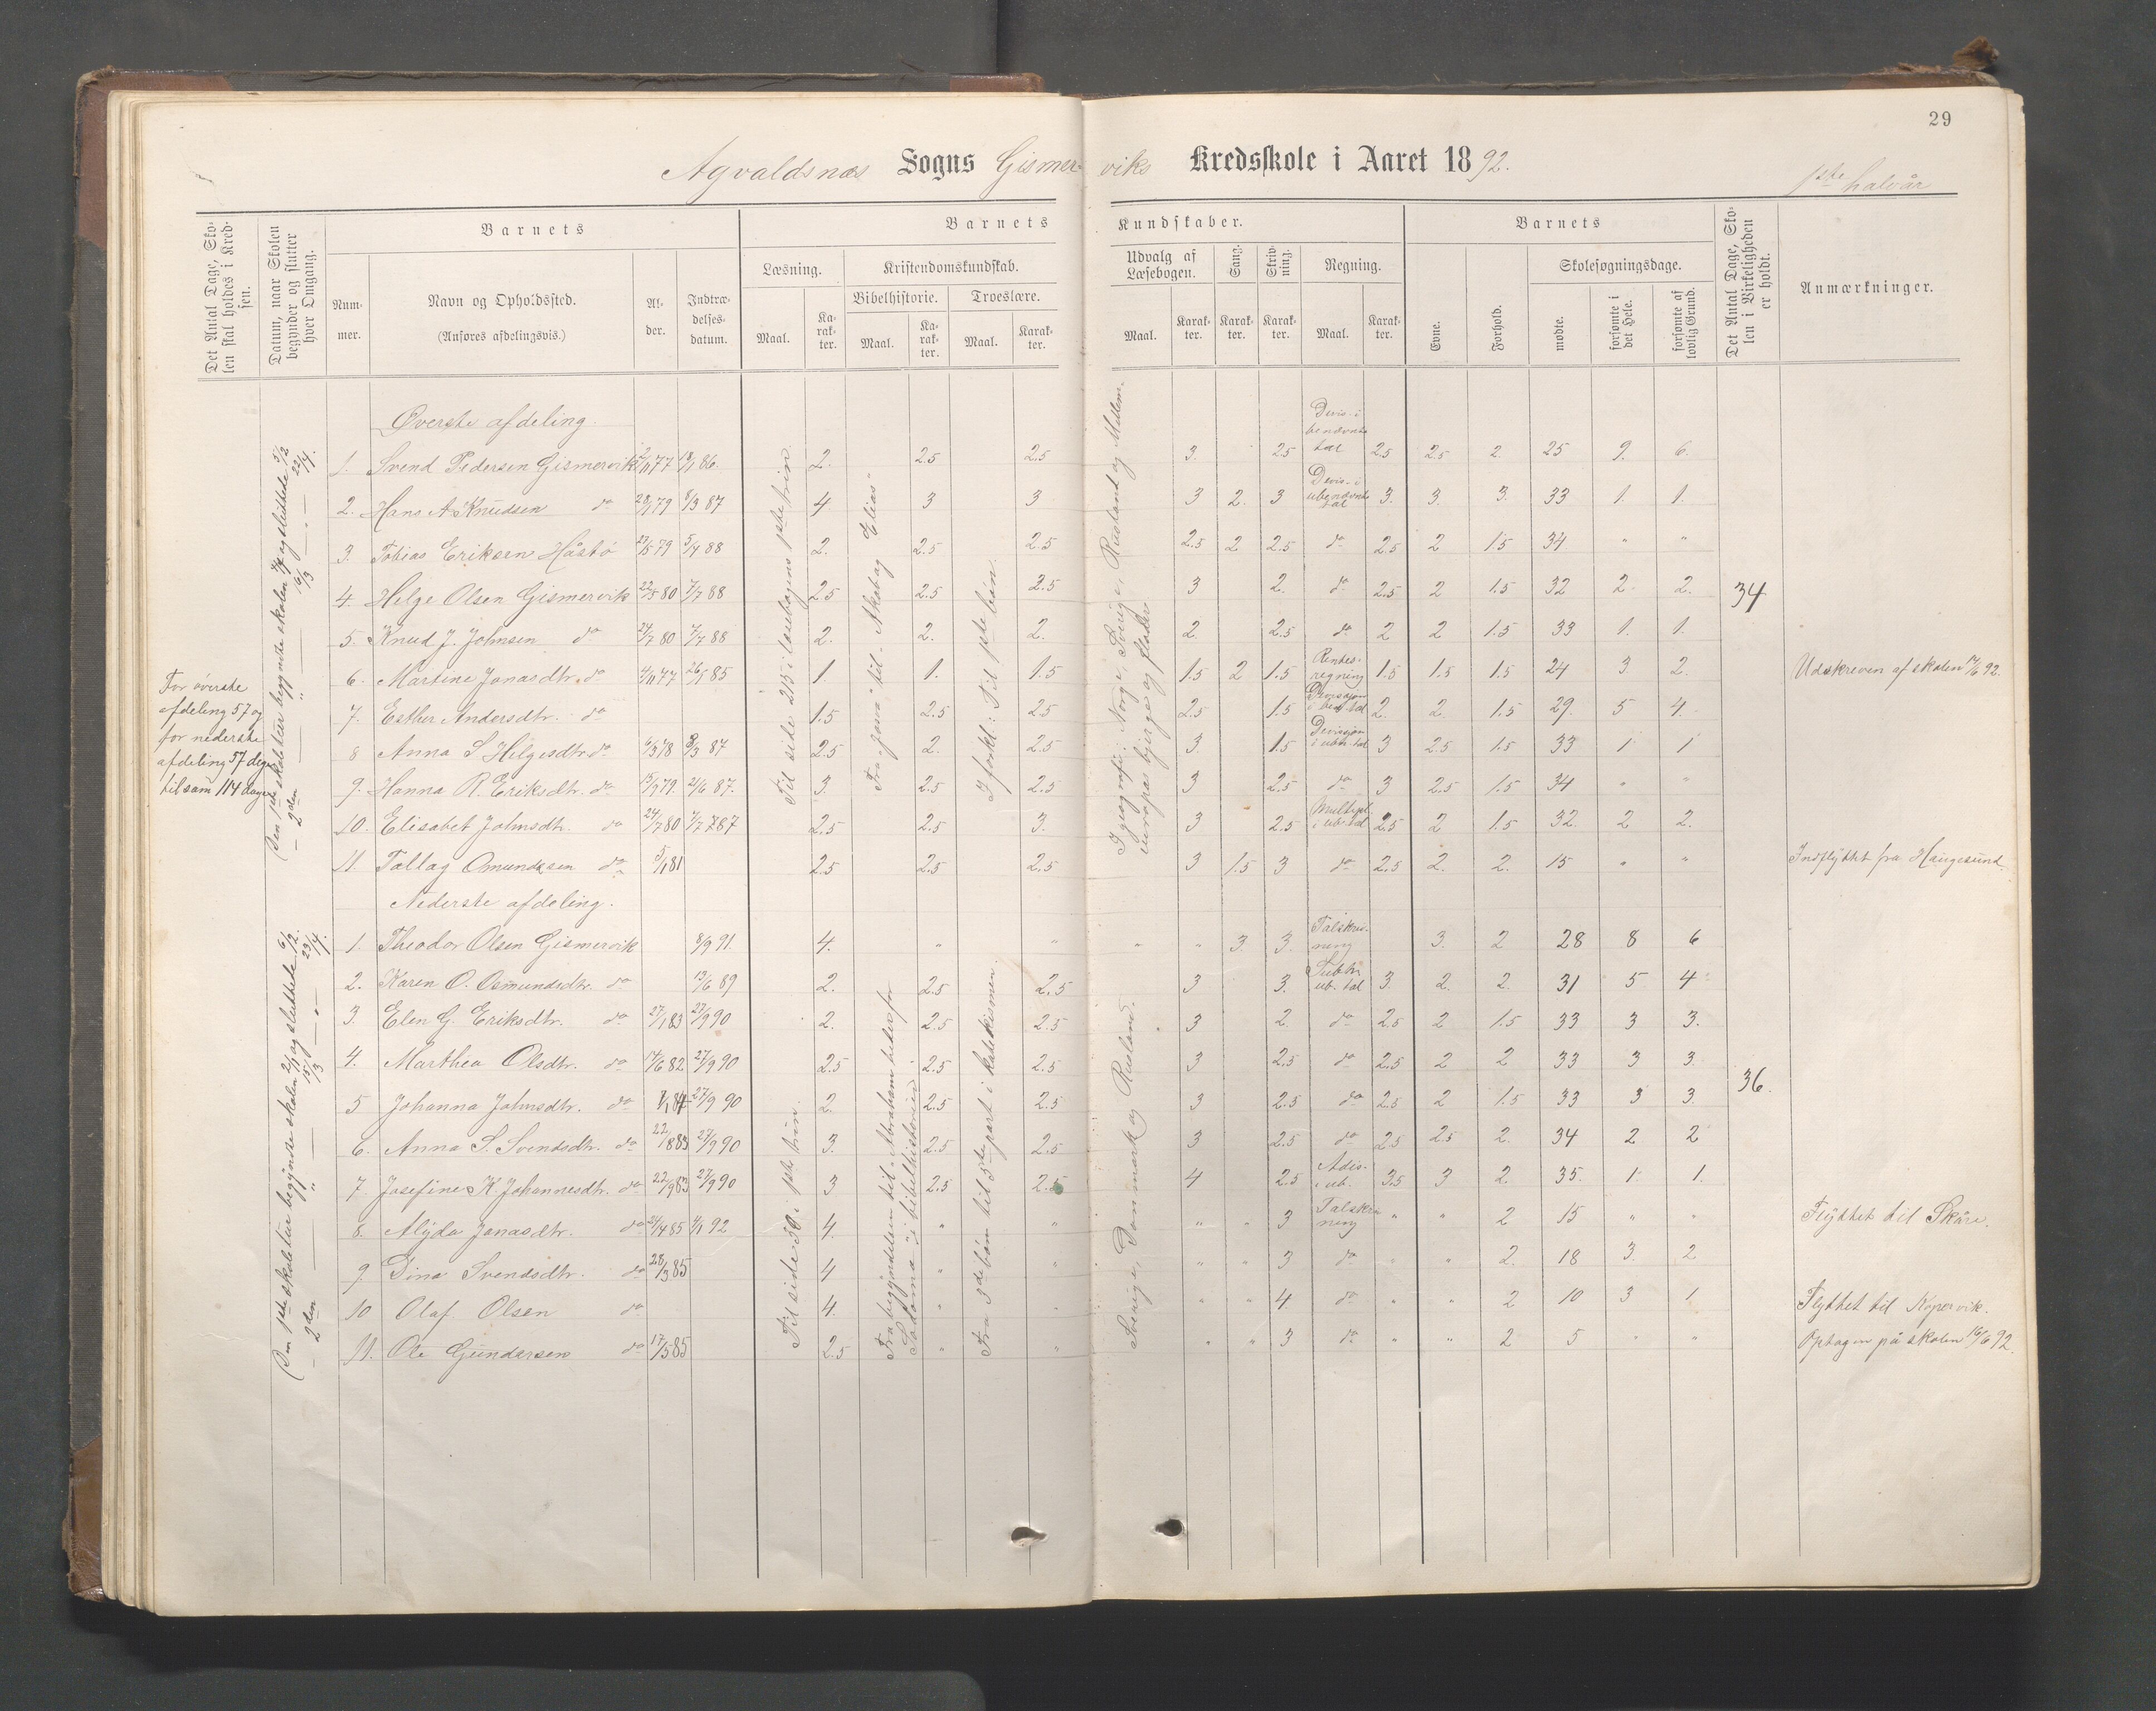 29
Agvaldsnæs Sogns Gismer- viks Kredsskole i Aaret 1892.
1ste halvår
Det Antal Dage, Skolen skal holdes i Kredsen.
Datum, naar Skolen begynder og slutter hver Omgang.
Barnets
Nummer.
Navn og Opholdssted.
(Anføres afdelingsvis.)
Alder.
Indtrædelsesdatum.
Barnets Kundskaber.
Læsning.
Maal.
Karakter.
Kristendomskundskab.
Bibelhistorie.
Maal.
Karakter.
Troeslære.
Maal.
Karakter.
Udvalg af Læsebogen.
Maal.
Karakter.
Sang.
Karakter.
Skrivning.
Karakter.
Regning.
Maal.
Karakter.
Barnets
Evne.
Forhold.
Skolesøgningsdage.
mødte.
forsømte i det Hele.
forsømte af lovlig Grund.
Det Antal Dage, Skolen i Virkeligheden er holdt.
Anmærkninger.
For øverste
afdeling 57 og
for nederste
afdeling 57 dage
tilsam 114 dage
Øverste afdeling.
Til side 215 i læsebogens 1ste trin.
I forkl: Til 1ste bøn.
I geografi: Norge, Sverige, Rusland og Mellem-
europas bjerge og floder
1. Svend Pedersen Gismervik 86. 2. 2.5 2.5 3. 2.5 Devis. i benævnte tal 2.5 2.5 2. 25 9. 6.
2. Hans A Knudsen do 8/3 87 4 3 3 3 2. 3 Devis. i ubenævnte tal 3. 3. 3. 33 1. 1.
3. Tobias Eriksen Håstø 5/4 88 2. 2.5 2.5 2.5 2 2.5 do 2.5 2 1.5 34 " "
4. Helge Olsen Gismervik 22/5 80 7/7 88 2.5 2.5 2.5 3 2. do 2.5 2 1.5 32 2. 2.
34
5. Knud J. Johnsen do 24/7 80 7/7 88 2. 2. 2. 2. 2.5 do 2 2 1.5 33 1. 1.
6. Martine Jonasdtr. do 4/11 77 26/5 85 1. 1. 1.5 1.5 2 1.5 Rentesregning 1.5 1.5 1.5 24 3 2. Udskreven af skolen 92.
7. Esther Andersdtr. do 1.5 2.5 2.5 2.5 1.5 2. 2. 1.5 29. 5 4.
8 Anna S Helgesdtr do 6/3 78 8/3 87 2.5 2. 2.5 3. 1.5 3 2.5 1.5 33 1 1
9. Hanna R. Eriksdtr. do 15/9 79. 21/6 87. 3. 2.5 2.5 3 2.5 do 3 2.5 1.5 34 " "
10. Elisabet Johnsdtr. do 24/7 80 2.5 2.5 3. 3 2.5 2.5 2 1.5 32. 2 2.
11. Omundsen do 5/1 81 2.5 2.5 2.5 3 1.5 3 do 2.5 2. 2. 15 " " Indflyttet fra Haugesund
Nederste afdeling.
Til side 39 i 1ste trin.
Fra 3die bøn til 5te part i katekismen.
Sverige, Danmark og Rusland.
1. Theodor Olsen Gismervik 8/9 91. 4. " " " " 3. 3. Talskrivning 3. 2 28 8 6
2. Karen O. Osmundsdtr. do 13/6 89 2. 2.5 2.5 3 3. Subtr. ub. tal 3. 2. 2. 31 5 4
3. Elen G. Eriksdtr. do 27/1 83 27/9 90 2. 2.5 2.5 3 2. do 2.5 2 1.5 33 3 3.
4. Marthea Olsdtr. do 14/6 82 27/9 90 2.5 2.5 2.5 3 2.5 do 2.5 2 2 33 3 3.
36.
5 Johanna Johnsdtr. do 27/9 90 2. 2.5 2.5 3 2.5 do 2.5 2 1.5 33 3 3.
6. Anna S. Svendsdtr. do 22/8 83 27/9 90 3. 2.5 2.5 3 2.5 do 2.5 2.5 2. 34 2 2
7. Josefine K. Johannesdtr. do 22/9 83 27/9 90 3 2.5 2.5 4 2.5 Adis. i ub. 3.5 3 2. 35. 1. 1.
8. Alyda Jonasdtr. do 4/1 92 4. " " " " 3 Talskrivning " " 2 15 " " Flyttet til Skåre.
9 Dina Svendsdtr. do 28/3 85 4 " " " " 3 do " " 2. 18 3. 2
10 Olaf Olsen do 4. " " " " 4. do " " 2 10 3 1 Flyttet til Kopervik.
11. Ole Gundersen do 17/5 85 2.5 " " " " 3 do " " 2 5 " " Optagen på skolen 16/6 92.